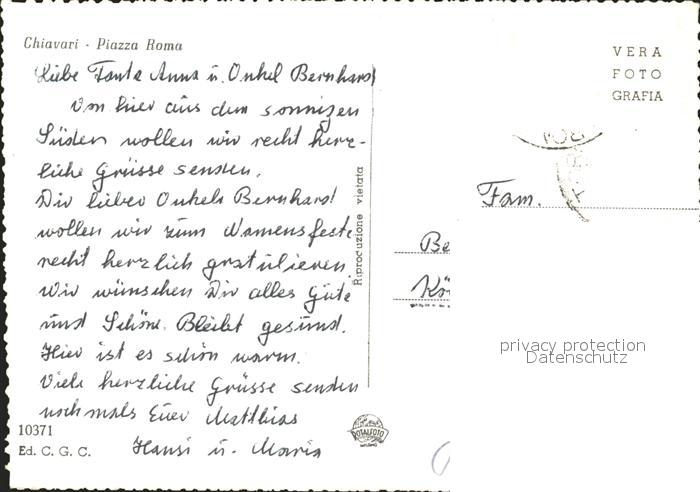 Chiavari - Piazza Roma
Liebe Tante Anna u. Onkel Bernhard
Von hier aus dem sonnigen
Süden wollen wir recht herz-
liche Grüsse senden.
Dir lieber Onkel Bernhard
wollen wir zum Namensfeste
recht herzlich gratulieren.
Wir wünschen Dir alles Gute
und Schöne. Bleibt gesund.
Hier ist es schön warm.
Viele herzliche Grüsse senden
nochmals Euer Matthias
Hansi u. Maria
10371
Ed. C. G. C.
Riproduzione vietata
ROTALFOTO
VERA
FOTO
GRAFIA
Fam.
Be
Kö
privacy protection
Datenschutz